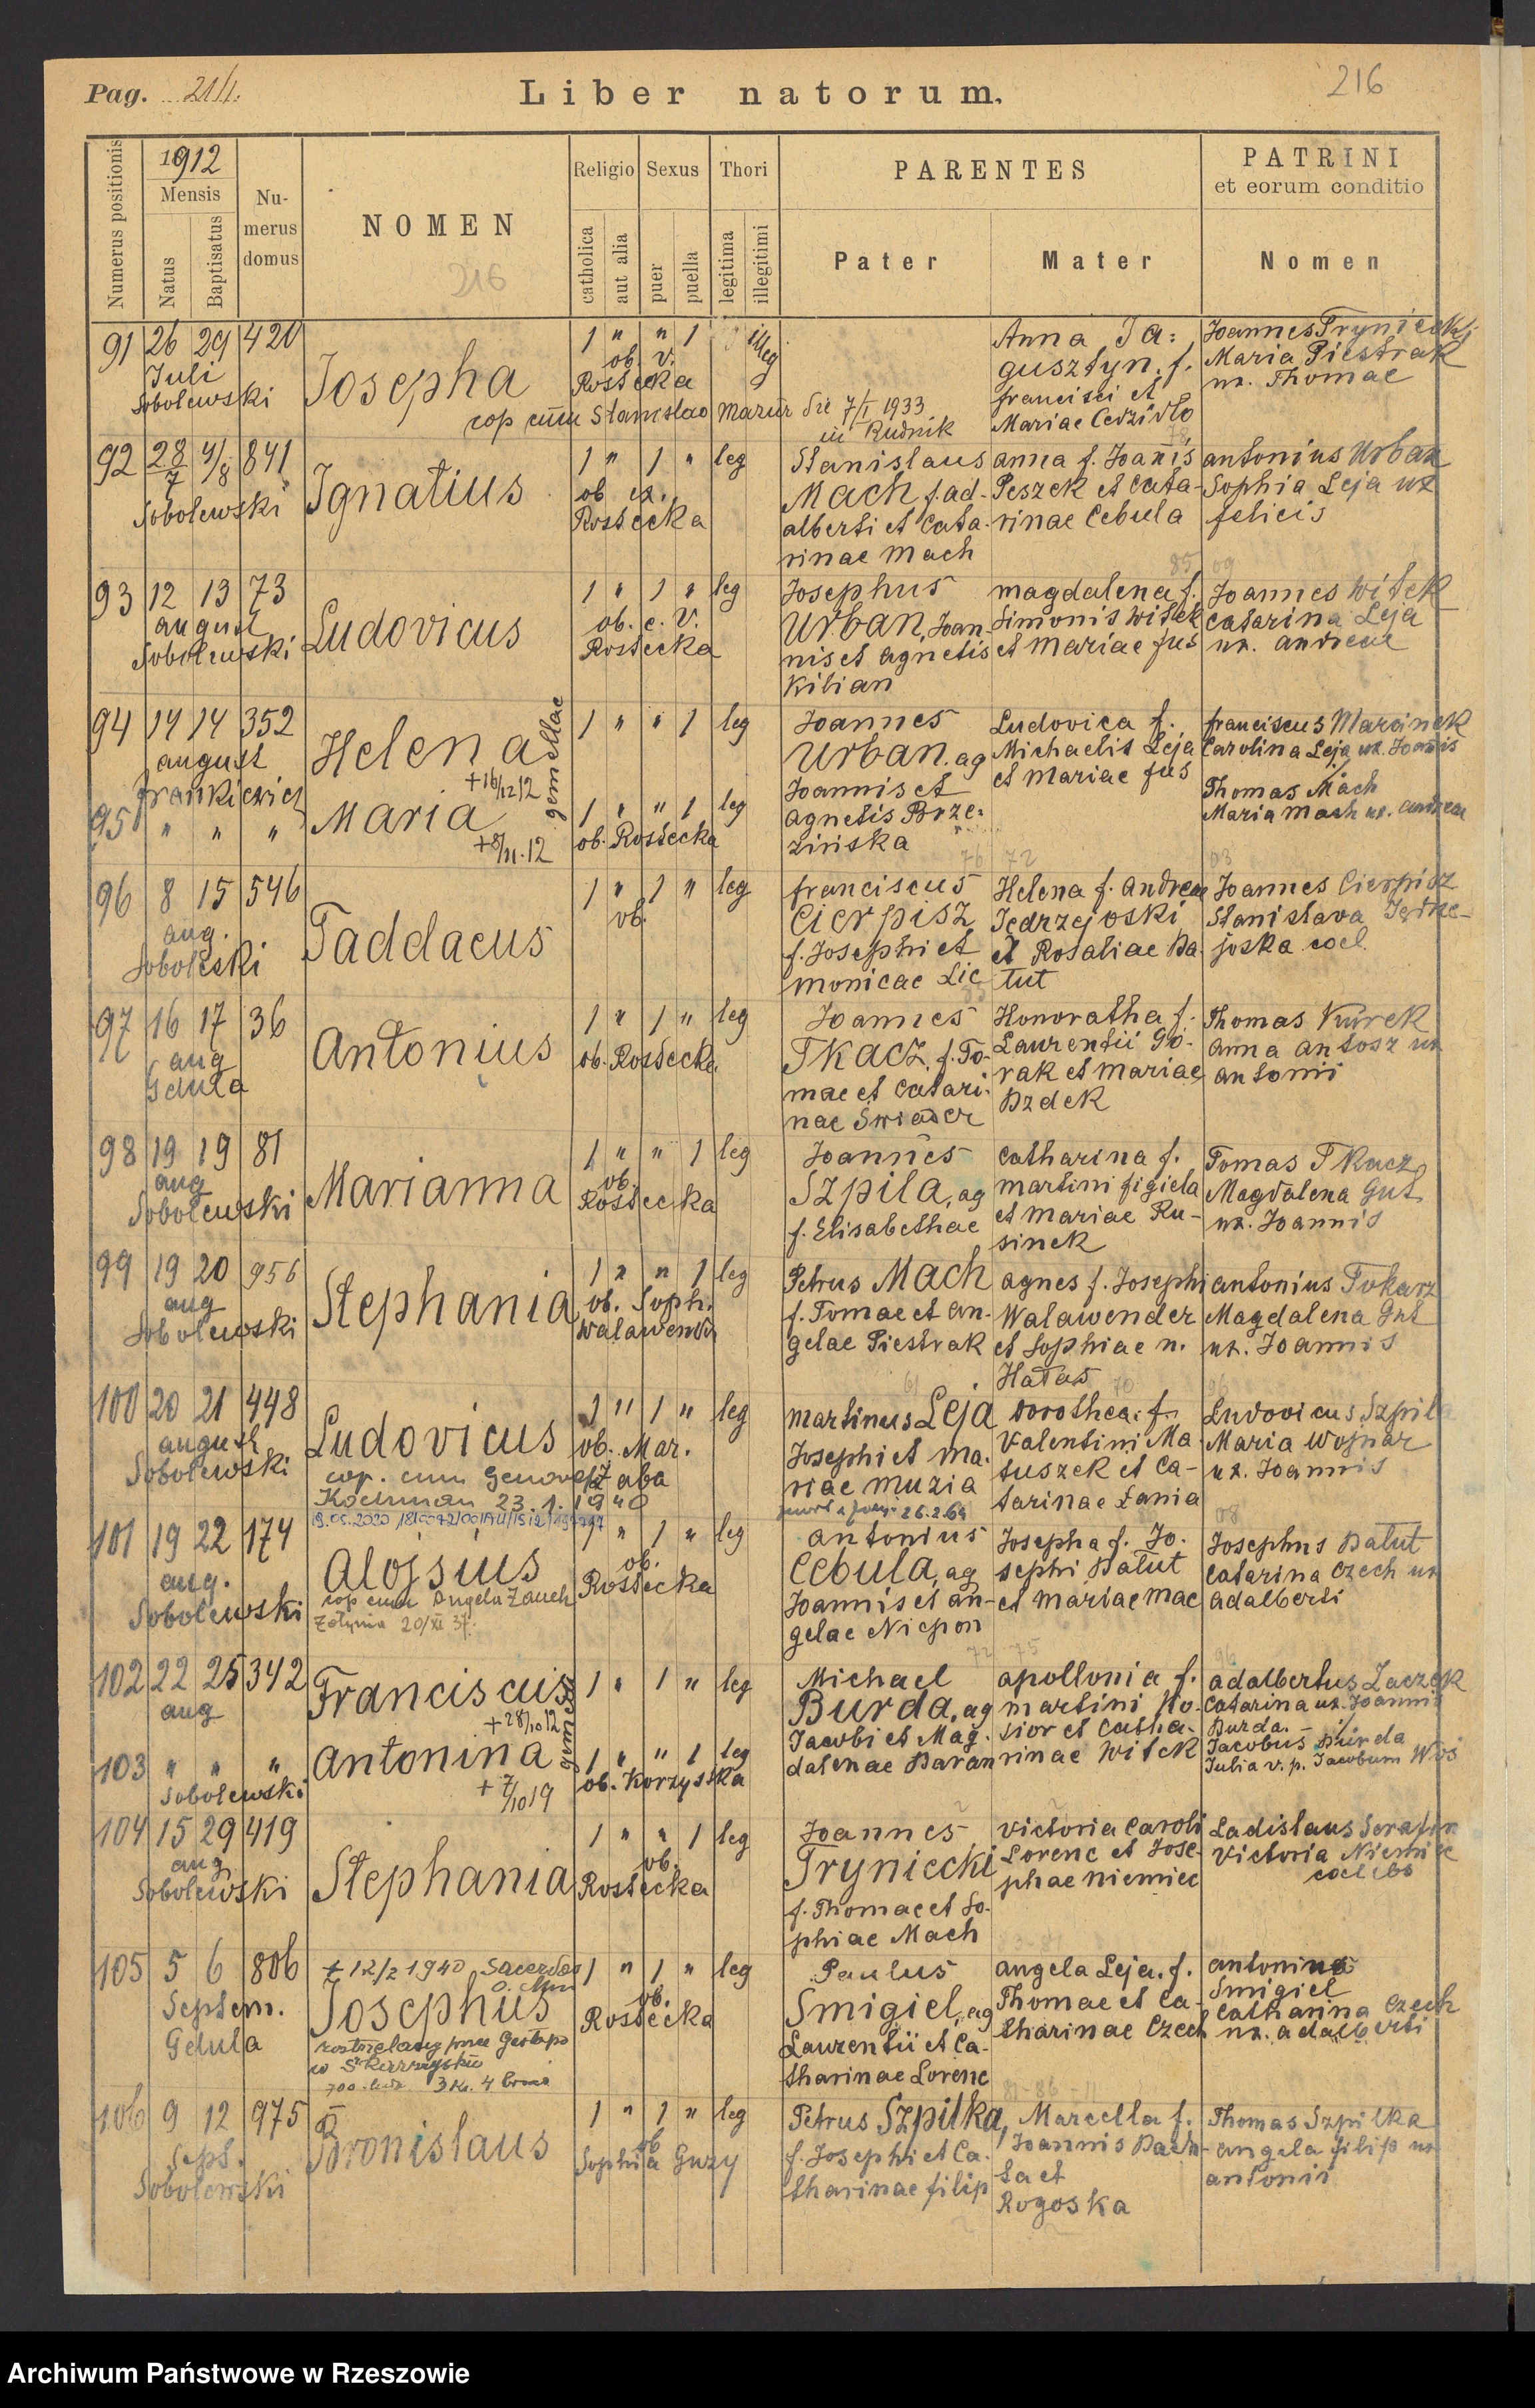 Pag. 211. Liber natorum. 216
Numerus positionis
1912
Mensis
Natus
Baptisatus
Nu-
merus
domus
NOMEN
216
Religio
catholica
aut alia
Sexus
puer
puella
Thori
legitima
illegitimi
PARENTES
Pater
Mater
PATRINI
et eorum conditio
Nomen
91 26 29 420
Juli
Sobolewski
Josepha
cop cum Stanislao Mazur die 7/I 1933
in Rudnik
1 " " 1 illeg
ob. v.
Rossecka
Anna Ja=
gusztyn. f.
francisci et
Mariae Cedzidło
Joannes Tryniecki
Maria Piestrak
ux. Thomae
92 28/7 4/8 841
Sobolewski
Ignatius
1 " 1 " leg
ob ex.
Rossecka
Stanislaus
Mach f. ad-
alberti et Cata-
rinae Mach
anna f. Joanis
Peszek et Cata-
rinae Cebula
antonius Urban
Sophia Leja ux
felicis
93 12 13 73
august
Sobolewski
Ludovicus
1 " 1 " leg
ob. e. v.
Rossecka
Josephus
Urban, Joan-
nis et agnetis
Kilian
magdalena f.
Simonis Witek
et Mariae Jus
Joannes Witek
Catarina Leja
ux. andreae
94 14 14 352
august
Frankiewicz
Helena
+16/12 12
gemellae
1 " " 1 leg
Joannes
Urban. ag
Joannis et
agnetis Brze=
zińska
Ludovica f.
Michaelis Leja
et Mariae Jus
franciscus Marcinek
Carolina Leja ux. Joannis
95 " " "
Maria
+8/11.12
1 " " 1 leg
ob. Rossecka
Thomas Mach
Maria Mach ux. andreae
96 8 15 546
aug.
Soboleski
Taddaeus
1 " 1 " leg
ob.
franciscus
Cierpisz
f. Josephi et
monicae Lic
Helena f. andreae
Jędrzejoski
et Rosaliae Ba-
tut
Joannes Cierpisz
Stanislava Jędrze-
joska coel.
97 16 17 36
aug
Gdula
Antonius
1 " 1 " leg
ob. Rossecka
Joannes
Tkacz, f. To-
mae et Catari-
nae Świader
Honoratha f.
Laurentii Gó-
rak et mariae
Bzdek
Thomas Kurek
anna antosz ux
antonii
98 19 19 81
aug
Sobolewski
Marianna
1 " " 1 leg
ob.
Rossecka
Joannes
Szpila, ag
f. Elisabethae
Catharina f.
martini figiela
et Mariae Ru-
sinek
Tomas Tkacz
Magdalena Gut
ux. Joannis
99 19 20 956
aug
Sobolewski
Stephania
1 " " 1 leg
ob. Soph.
Walawender
Petrus Mach
f. Tomae et an-
gelae Piestrak
agnes f. Josephi
Walawender
et Sophiae n.
Hatas
antonius Tokarz
Magdalena Gut
ux. Joannis
100 20 21 448
august
Sobolewski
Ludovicus
cop. cum Genovefa
Kochman 23.1.1940
1 " 1 " leg
ob. Mar.
Żaba
martinus Leja
Josephi et ma-
riae Muzia
Dorothea f.
Valentini Ma-
tuszek et Ca-
tarinae Łania
Ludovicus Szpila
Maria Wojnar
ux. Joannis
101 19 22 174
aug.
Sobolewski
Alojsius
cop cum Angela Zauch
Żołynia 20/XI 37.
1 " 1 " leg
ob.
Rossecka
antonius
Cebula, ag
Joannis et an-
gelae Nicpon
Josepha f. Jo-
sephi Batut
et mariae Mac
Josephus Batut
Catarina Czech ux
adalberti
102 22 25 342
aug
Franciscus
+28/10 12
gemelli
1 " 1 " leg
Michael
Burda, ag
Jacobi et Mag-
dalenae Baran
apollonia f.
martini Ko-
sior et Catha-
rinae Witek
adalbertus Zaczek
Catarina ux. Joannis
Burda. -
103 " " "
Sobolewski
Antonina
+7/10 19
1 " " 1 leg
ob. Korzyska
Jacobus Burda
Julia v. p. Jacobum Woś
104 15 29 419
aug
Sobolewski
Stephania
1 " " 1 leg
ob.
Rossecka
Joannes
Tryniecki
f. Thomae et So-
phiae Mach
Victoria Caroli
Lorenc et Jose-
phae niemiec
Ladislaus Serafin
Victoria Niemiec
coelebs
105 5 6 806
Septem.
Gdula
+ 12/2 1940 Sacerdos
Josephus
rozstrzelany przez Gestapo
w Skarżysku
1 " 1 " leg
ob.
Rossecka
Paulus
Smigiel, ag
Laurentii et Ca-
tharinae Lorenc
angela Leja. f.
Thomae et Ca-
tharinae Czech
antonius
Smigiel
Catharina Czech
ux. adalberti
106 9 12 975
Sept.
Sobolewski
Bronislaus
1 " 1 " leg
ob
Sophia Guzy
Petrus Szpilka,
f. Josephi et Ca-
tharinae filip
Marcella f.
Joannis Bach-
ta et
Rogoska
Thomas Szpilka
angela filip ux
antonii
Archiwum Państwowe w Rzeszowie